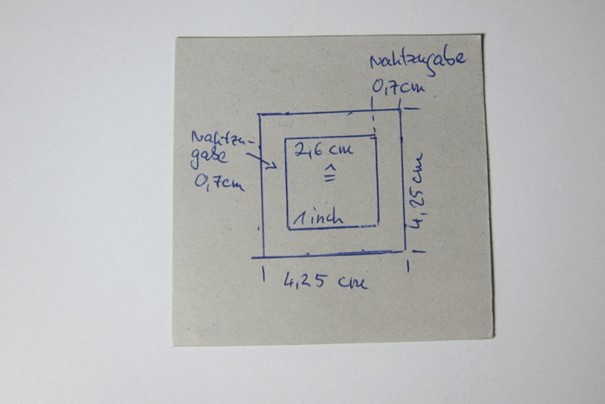 Nahtzugabe
0,7cm
Nahtzu-
gabe
0,7cm
2,6 cm
≙
1 inch
4,25 cm
4,25 cm